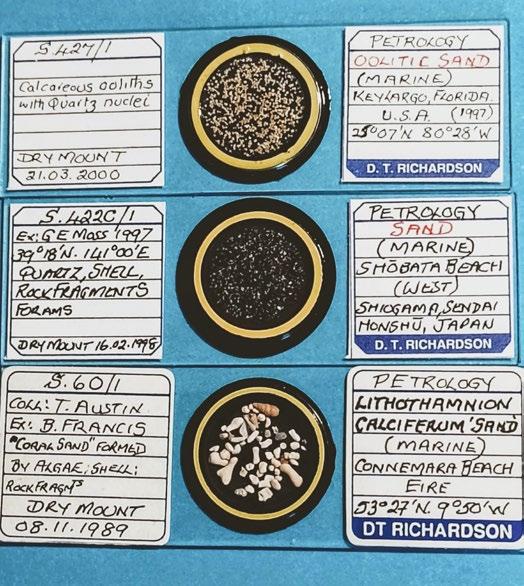 S.427/1
Calcareous ooliths
with Quartz nuclei
DRY MOUNT
21.03.2000
PETROLOGY
OOLITIC SAND
(MARINE)
KEY LARGO, FLORIDA.
U.S.A. (1997)
25°07'N 80°28'W
D. T. RICHARDSON
S.422C/1
Ex: G E Moss '1997
39°18'N. 141°00'E
QUARTZ, SHELL,
ROCK FRAGMENTS
FORAMS
DRY MOUNT 16.02.1998
PETROLOGY
SAND
(MARINE)
SHŌBATA BEACH
(WEST)
SHIOGAMA, SENDAI
HONSHŪ, JAPAN
D. T. RICHARDSON
S.60/1
COLL: T. AUSTIN
EX: B. FRANCIS
"CORAL SAND" FORMED
BY ALGAE; SHELL;
ROCK FRAGMTS
DRY MOUNT
08.11.1989
PETROLOGY
LITHOTHAMNION
CALCIFERUM 'SAND'
(MARINE)
CONNEMARA BEACH
EIRE
53°27'N. 9°50'W
DT RICHARDSON